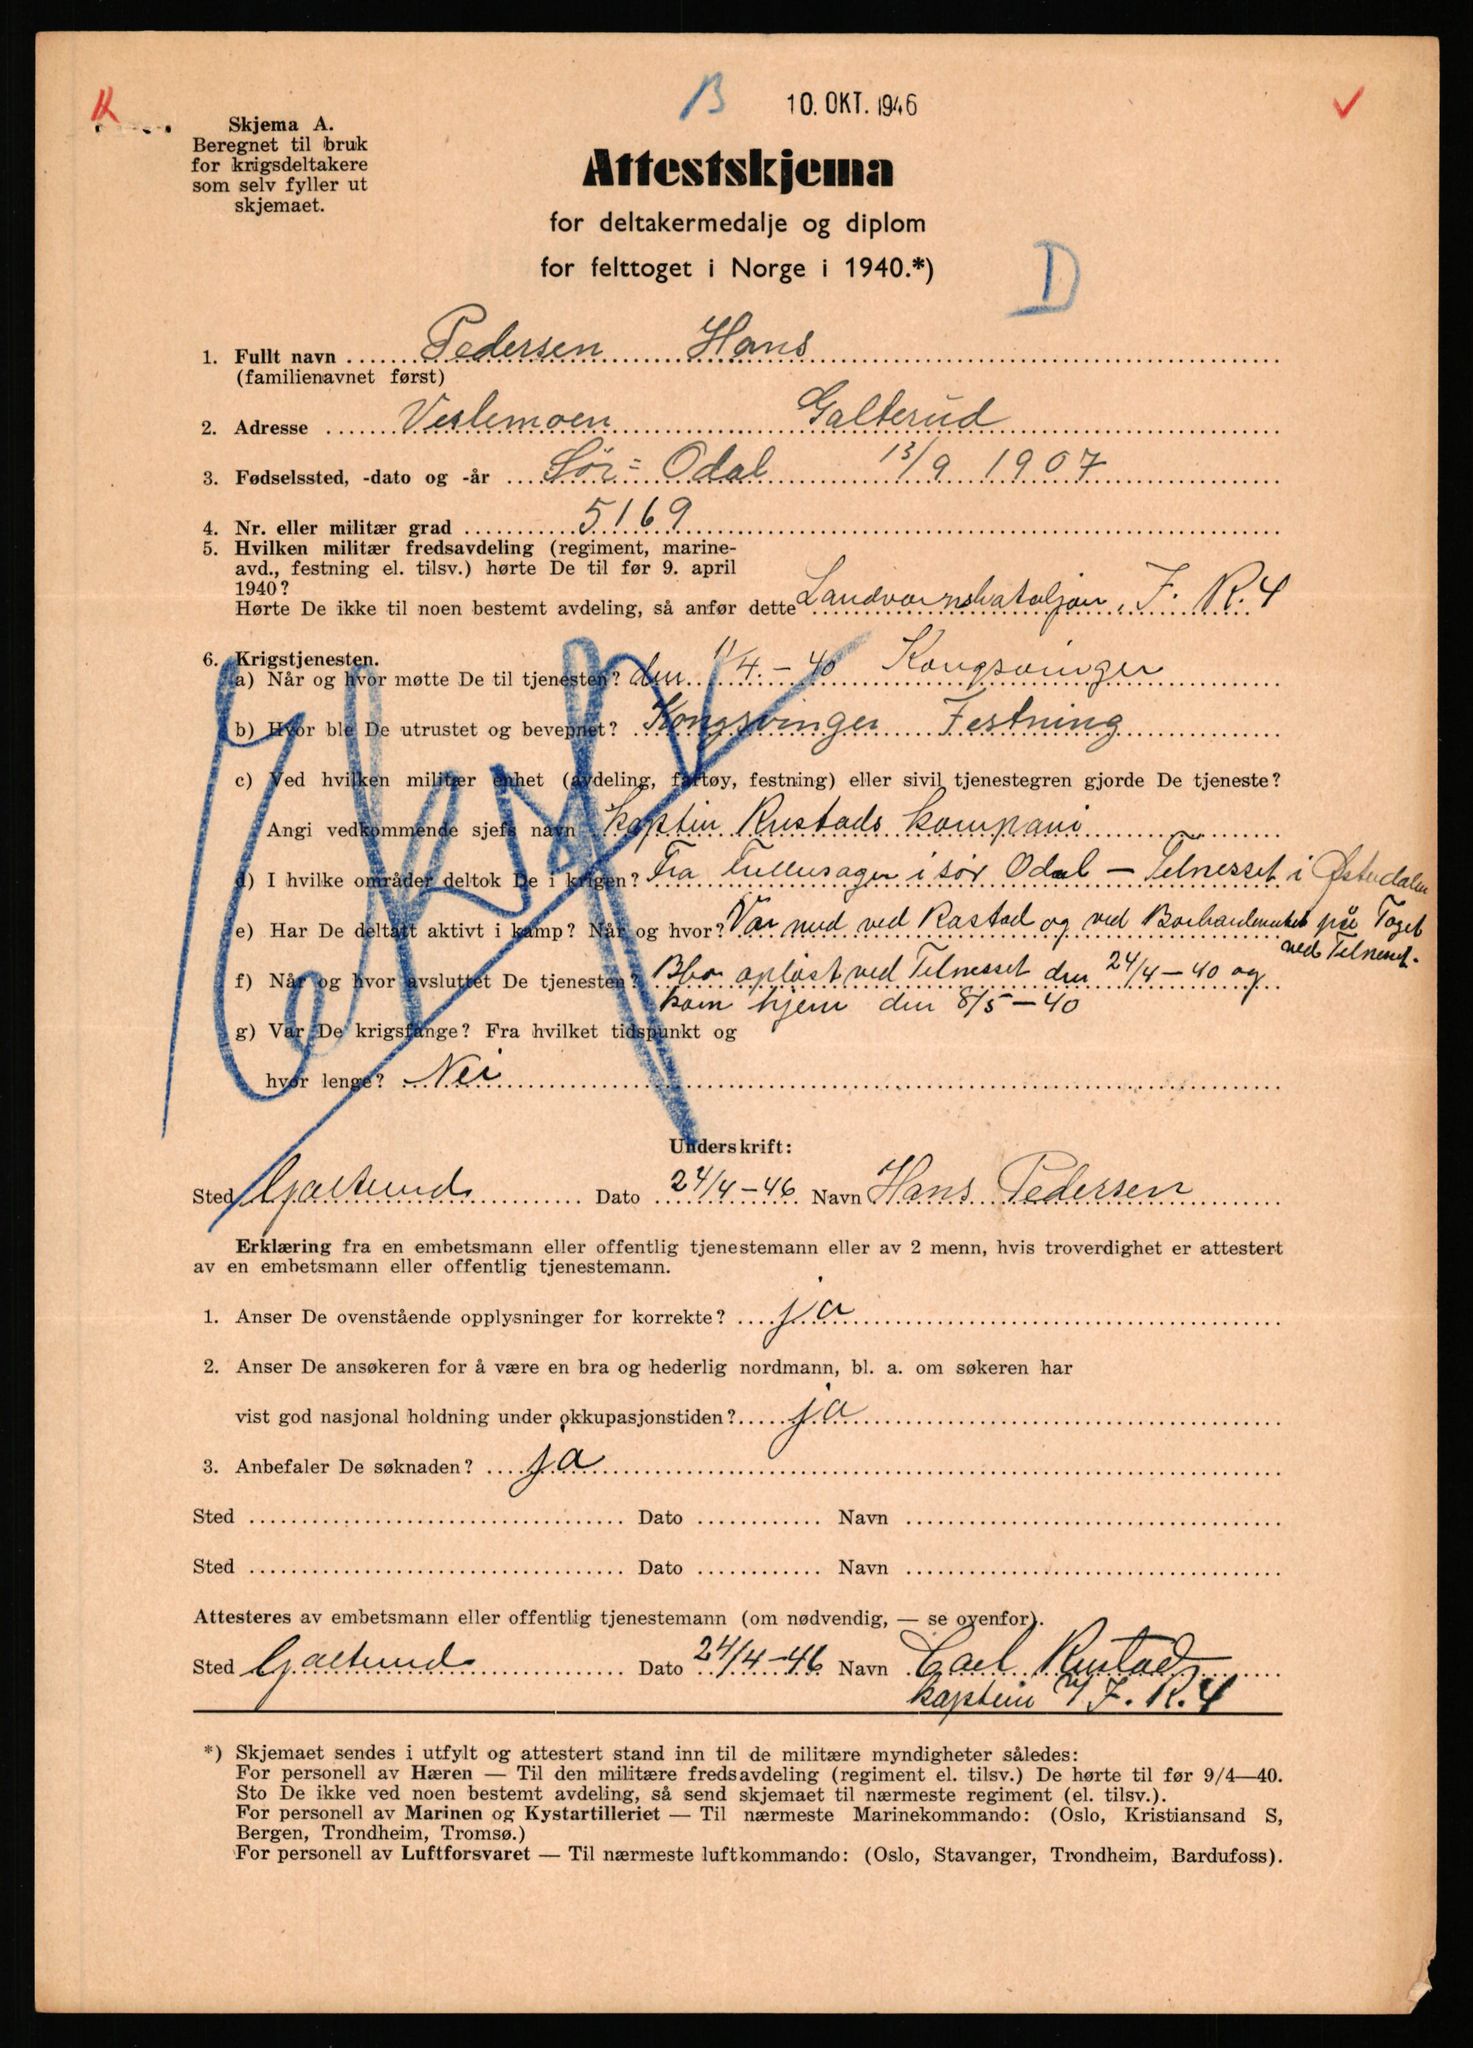 B 10. OKT. 1946
Skjema A.
Beregnet til bruk
for krigsdeltakere
som selv fyller ut
skjemaet.
Attestskjema
for deltakermedalje og diplom
for felttoget i Norge i 1940.*)
D
1. Fullt navn Pedersen Hans
(familienavnet først)
2. Adresse Veslemoen Galterud
3. Fødselssted, -dato og -år Sør-Odal 13/9 1907
4. Nr. eller militær grad 5169
5. Hvilken militær fredsavdeling (regiment, marine-
avd., festning el. tilsv.) hørte De til før 9. april
1940?
Hørte De ikke til noen bestemt avdeling, så anfør dette Landvernsbataljon, I. R. 4
6. Krigstjenesten.
a) Når og hvor møtte De til tjenesten? den 11/4-40 Kongsvinger
b) Hvor ble De utrustet og bevepnet? Kongsvinger Festning
c) Ved hvilken militær enhet (avdeling, fartøy, festning) eller sivil tjenestegren gjorde De tjeneste?
Angi vedkommende sjefs navn Kaptein Rustads kompani
d) I hvilke områder deltok De i krigen? Fra i sør Odal - Telnesset i Østerdalen
e) Har De deltatt aktivt i kamp? Når og hvor? Var med ved Rastad og ved på Toget
ved Telneset.
f) Når og hvor avsluttet De tjenesten? opløst ved Telnesset den 24/4-40 og
kom hjem den 8/5-40
g) Var De krigsfange? Fra hvilket tidspunkt og
hvor lenge? Nei
Underskrift:
Sted Galterud Dato 24/4-46 Navn Hans Pedersen
Erklæring fra en embetsmann eller offentlig tjenestemann eller av 2 menn, hvis troverdighet er attestert
av en embetsmann eller offentlig tjenestemann.
1. Anser De ovenstående opplysninger for korrekte? ja
2. Anser De ansøkeren for å være en bra og hederlig nordmann, bl. a. om søkeren har
vist god nasjonal holdning under okkupasjonstiden? ja
3. Anbefaler De søknaden? ja
Sted Dato Navn
Sted Dato Navn
Attesteres av embetsmann eller offentlig tjenestemann (om nødvendig, — se ovenfor).
Sted Galterud Dato 24/4-46 Navn Carl Rustad
kaptein I. R. 4
*) Skjemaet sendes i utfylt og attestert stand inn til de militære myndigheter således:
For personell av Hæren — Til den militære fredsavdeling (regiment el. tilsv.) De hørte til før 9/4—40.
Sto De ikke ved noen bestemt avdeling, så send skjemaet til nærmeste regiment (el. tilsv.).
For personell av Marinen og Kystartilleriet — Til nærmeste Marinekommando: (Oslo, Kristiansand S,
Bergen, Trondheim, Tromsø.)
For personell av Luftforsvaret — Til nærmeste luftkommando: (Oslo, Stavanger, Trondheim, Bardufoss).